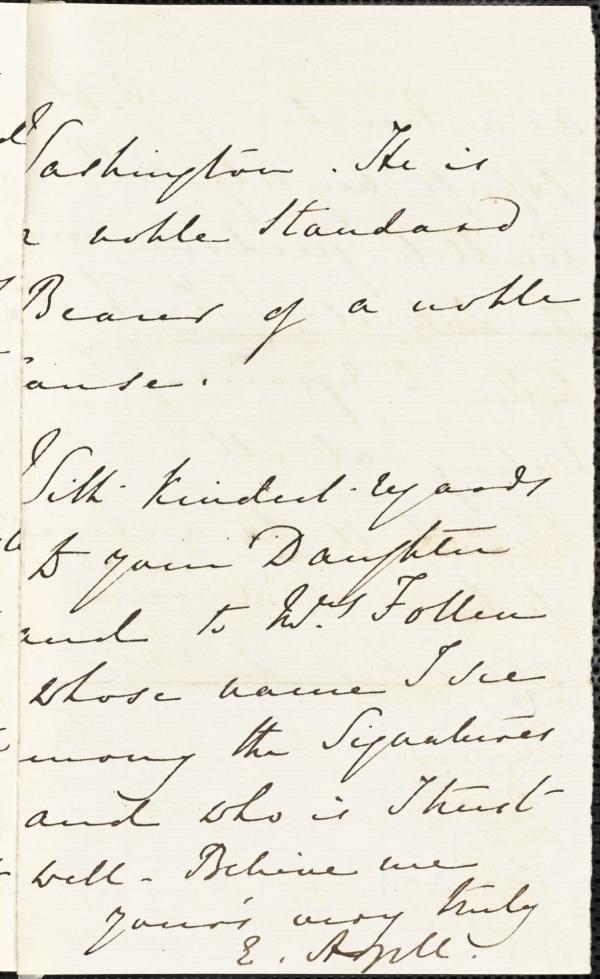 Washington. He is
a noble Standard
Bearer of a noble
Cause.
With kindest regards
to your Daughter
and to Mrs. Follen
whose name I see
among the Signatures
and who is I trust
well - Believe me
your's very truly
E. Argyll.